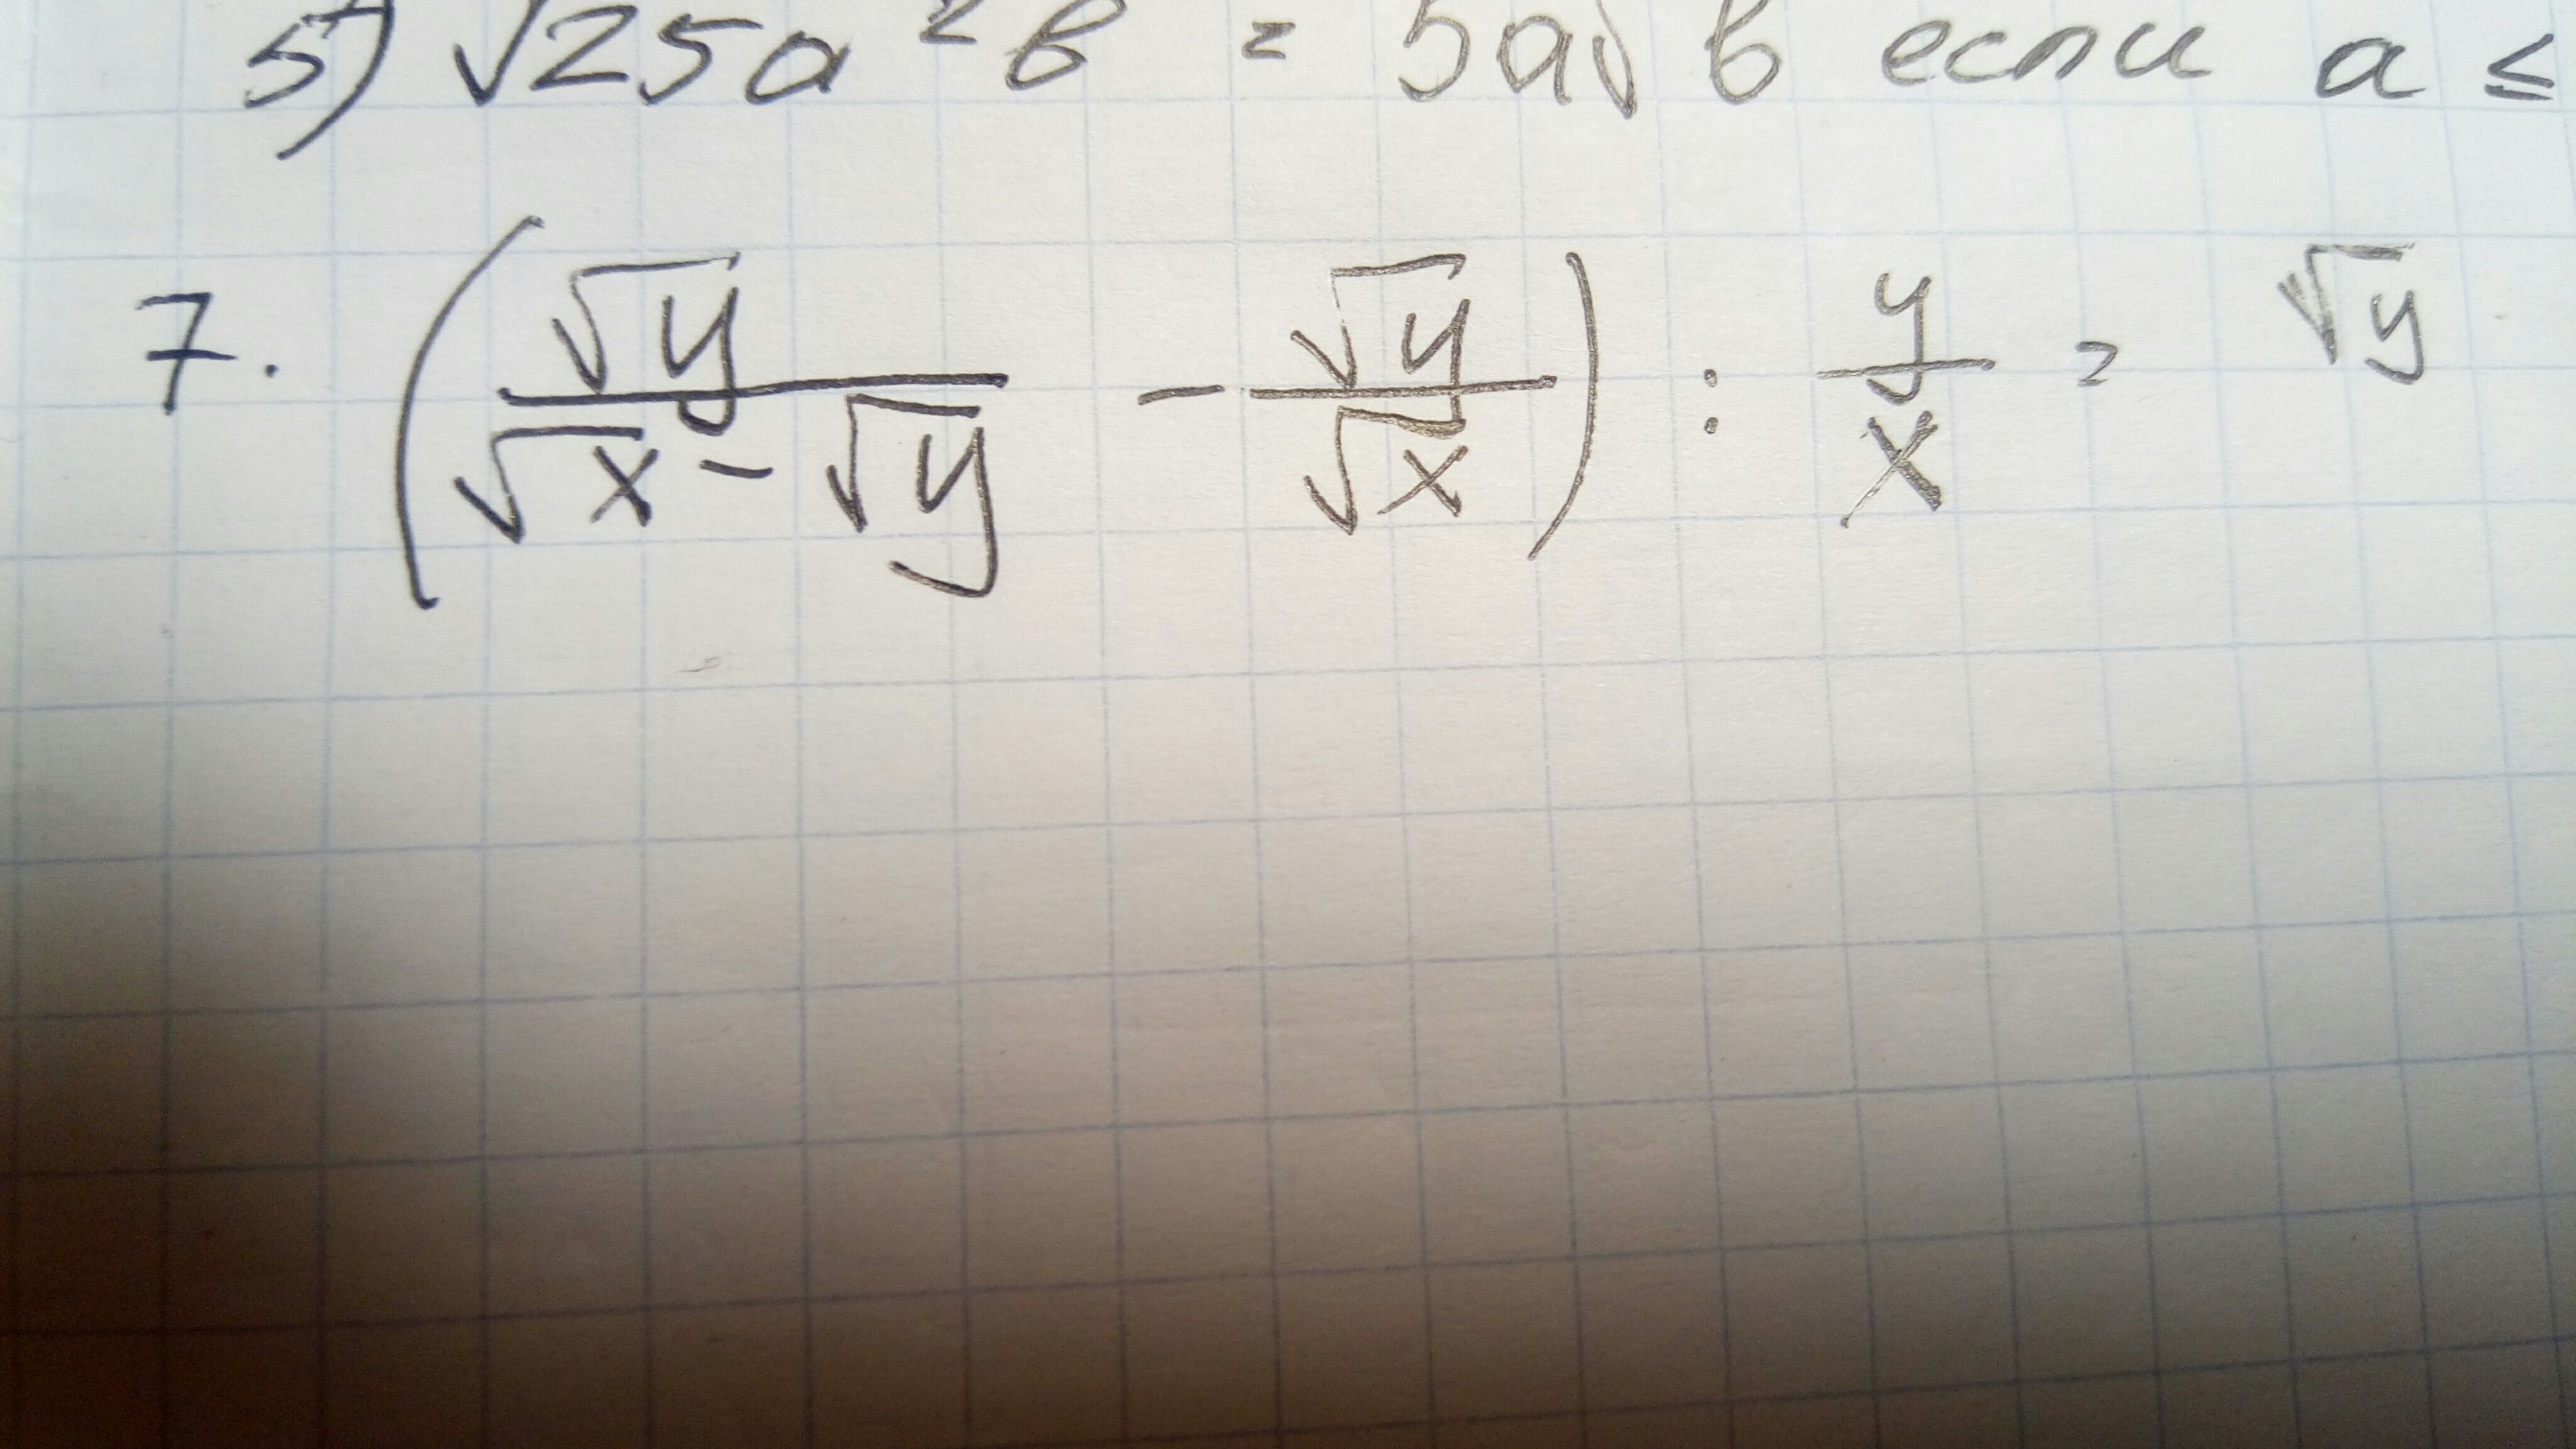 5) √25a²b = 5a√b если a ≤
7. (√y/(√x - √y) - √y/√x) : y/x = √y